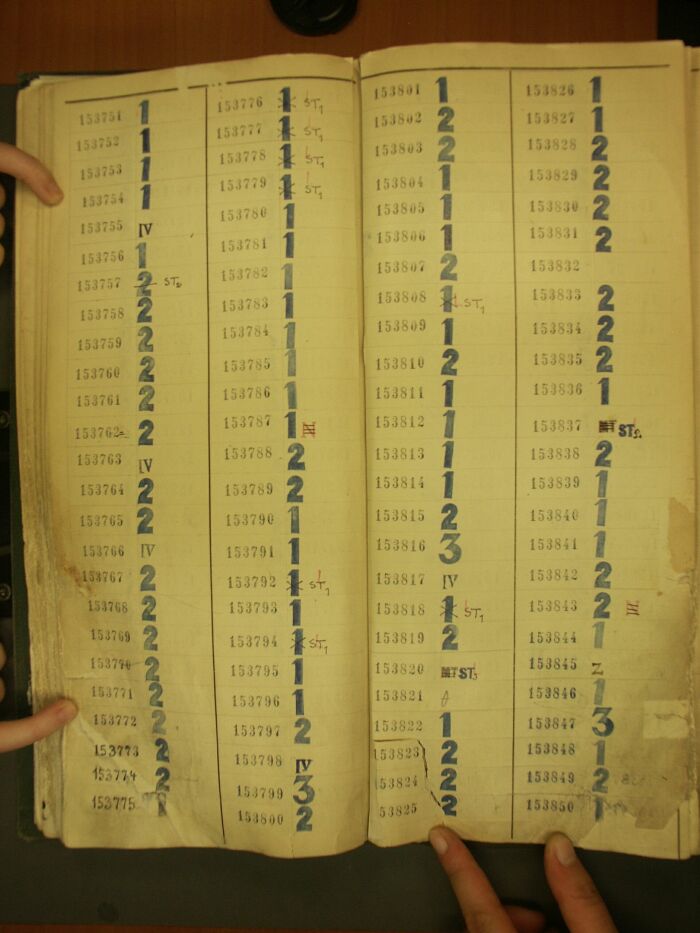 153751 1
153752 1
153753 1
153754 1
153755 IV
153756 1
153757 2 ST2
153758 2
153759 2
153760 2
153761 2
153762 2
153763 IV
153764 2
153765 2
153766 IV
153767 2
153768 2
153769 2
153770 2
153771 2
153772 2
153773 2
153774 2
153775 1
153776 1 ST1
153777 1 ST1
153778 1 ST1
153779 1 ST1
153780 1
153781 1
153782 1
153783 1
153784 1
153785 1
153786 1
153787 1
153788 2
153789 2
153790 1
153791 1
153792 1 ST1
153793 1
153794 1 ST1
153795 1
153796 1
153797 2
153798 IV
153799 3
153800 2
153801 1
153802 2
153803 2
153804 1
153805 1
153806 1
153807 2
153808 1 ST1
153809 1
153810 2
153811 1
153812 1
153813 1
153814 1
153815 2
153816 3
153817 IV
153818 1 ST1
153819 2
153820 ST3
153821
153822 1
153823 2
153824 2
53825 2
153826 1
153827 1
153828 2
153829 2
153830 2
153831 2
153832
153833 2
153834 2
153835 2
153836 1
153837 ST2
153838 2
153839 1
153840 1
153841 1
153842 2
153843 2
153844 1
153845
153846 1
153847 3
153848 1
153849 2
153850 1